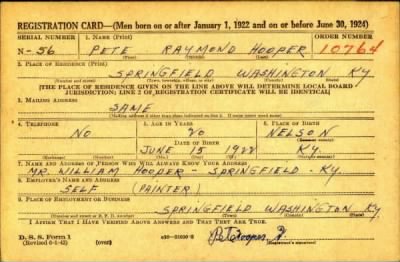 REGISTRATION CARD—(Men born on or after January 1, 1922 and on or before June 30, 1924)
SERIAL NUMBER 1. NAME (Print) ORDER NUMBER
N-56 PETE RAYMOND HOOPER 10764
(First) (Middle) (Last)
2. PLACE OF RESIDENCE (Print)
SPRINGFIELD WASHINGTON KY.
(Number and street) (Town, township, village, or city) (County) (State)
[THE PLACE OF RESIDENCE GIVEN ON THE LINE ABOVE WILL DETERMINE LOCAL BOARD
JURISDICTION; LINE 2 OF REGISTRATION CERTIFICATE WILL BE IDENTICAL]
3. MAILING ADDRESS
SAME
[Mailing address if other than place indicated on line 2. If same insert word same]
4. TELEPHONE 5. AGE IN YEARS 6. PLACE OF BIRTH
NO 20 NELSON
DATE OF BIRTH (Town or county)
JUNE 15 1922 KY.
(Exchange) (Number) (Mo.) (Day) (Yr.) (State or country)
7. NAME AND ADDRESS OF PERSON WHO WILL ALWAYS KNOW YOUR ADDRESS
MR. WILLIAM HOOPER - SPRINGFIELD - KY.
8. EMPLOYER'S NAME AND ADDRESS
SELF (PAINTER)
9. PLACE OF EMPLOYMENT OR BUSINESS
SPRINGFIELD WASHINGTON KY.
(Number and street or R. F. D. number) (Town) (County) (State)
I AFFIRM THAT I HAVE VERIFIED ABOVE ANSWERS AND THAT THEY ARE TRUE.
D. S. S. Form 1
(Revised 6-1-42) (over) (Registrant's signature)